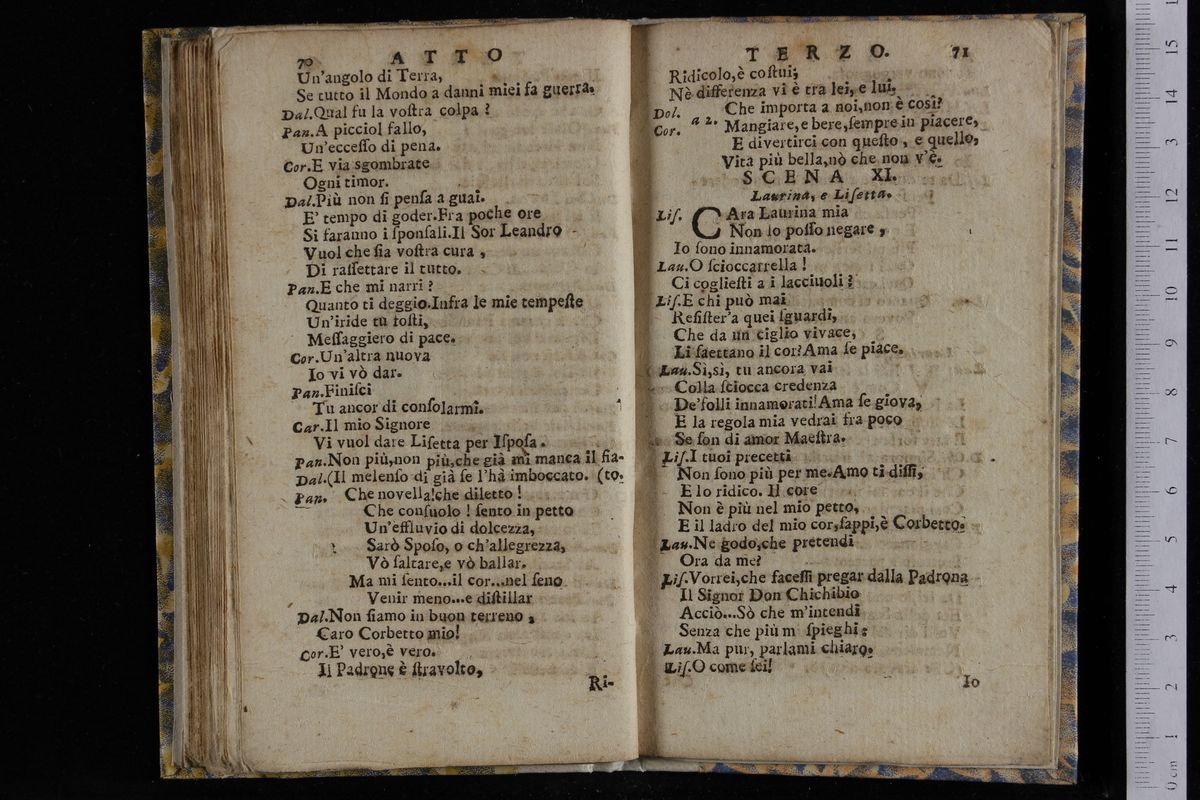 70 ATTO
Un'angolo di Terra,
Se tutto il Mondo a danni miei fa guerra.
Dal.Qual fu la voſtra colpa ?
Pan.A picciol fallo,
Un'ecceſſo di pena.
Cor.E via sgombrate
Ogni timor.
Dal.Più non ſi penſa a guai.
E' tempo di goder.Fra poche ore
Si faranno i ſponſali.Il Sor Leandro
Vuol che ſia voſtra cura ,
Di raſſettare il tutto.
Pan.E che mi narri ?
Quanto ti deggio.Infra le mie tempeſte
Un'iride tu foſti,
Meſſaggiero di pace.
Cor.Un'altra nuova
Io vi vò dar.
Pan.Finiſci
Tu ancor di conſolarmi.
Car.Il mio Signore
Vi vuol dare Liſetta per Iſpoſa .
Pan.Non più,non più,che già mi manca il fia-
Dal.(Il melenſo di già ſe l'hà imboccato. (to.
Pan. Che novella!che diletto !
Che conſuolo ! ſento in petto
Un'effluvio di dolcezza,
Sarò Spoſo, o ch'allegrezza,
Vò ſaltare,e vò ballar.
Ma mi ſento...il cor...nel ſeno
Venir meno...e diſtillar
Dal.Non ſiamo in buon terreno ,
Caro Corbetto mio!
Cor.E' vero,è vero.
Il Padrone è ſtravolto,
Ri-
TERZO. 71
Ridicolo,è coſtui;
Nè differenza vi è tra lei, e lui.
Dol. Cor. a 2. Che importa a noi,non è così?
Mangiare, e bere,ſempre in piacere,
E divertirci con queſto , e quello,
Vita più bella,nò che non v'è.
SCENA XI.
Laurina, e Liſetta.
Liſ. CAra Laurina mia
Non lo poſſo negare ,
Io ſono innamorata.
Lau.O ſcioccarrella !
Ci coglieſti a i lacciuoli ?
Liſ.E chi può mai
Reſiſter'a quei ſguardi,
Che da un ciglio vivace,
Li ſaettano il cor?Ama ſe piace.
Lau.Si,si, tu ancora vai
Colla ſciocca credenza
De'folli innamorati!Ama ſe giova,
E la regola mia vedrai fra poco
Se ſon di amor Maeſtra.
Liſ.I tuoi precetti
Non ſono più per me.Amo ti diſſi,
E lo ridico. Il core
Non è più nel mio petto,
E il ladro del mio cor,ſappi,è Corbetto.
Lau.Ne godo,che pretendi
Ora da me?
Liſ.Vorrei,che faceſſi pregar dalla Padrona
Il Signor Don Chichibio
Acciò...Sò che m'intendi
Senza che più m ſpieghi:
Lau.Ma pur, parlami chiaro.
Liſ.O come ſei!
Io
0 cm 1 2 3 4 5 6 7 8 9 10 11 12 13 14 15